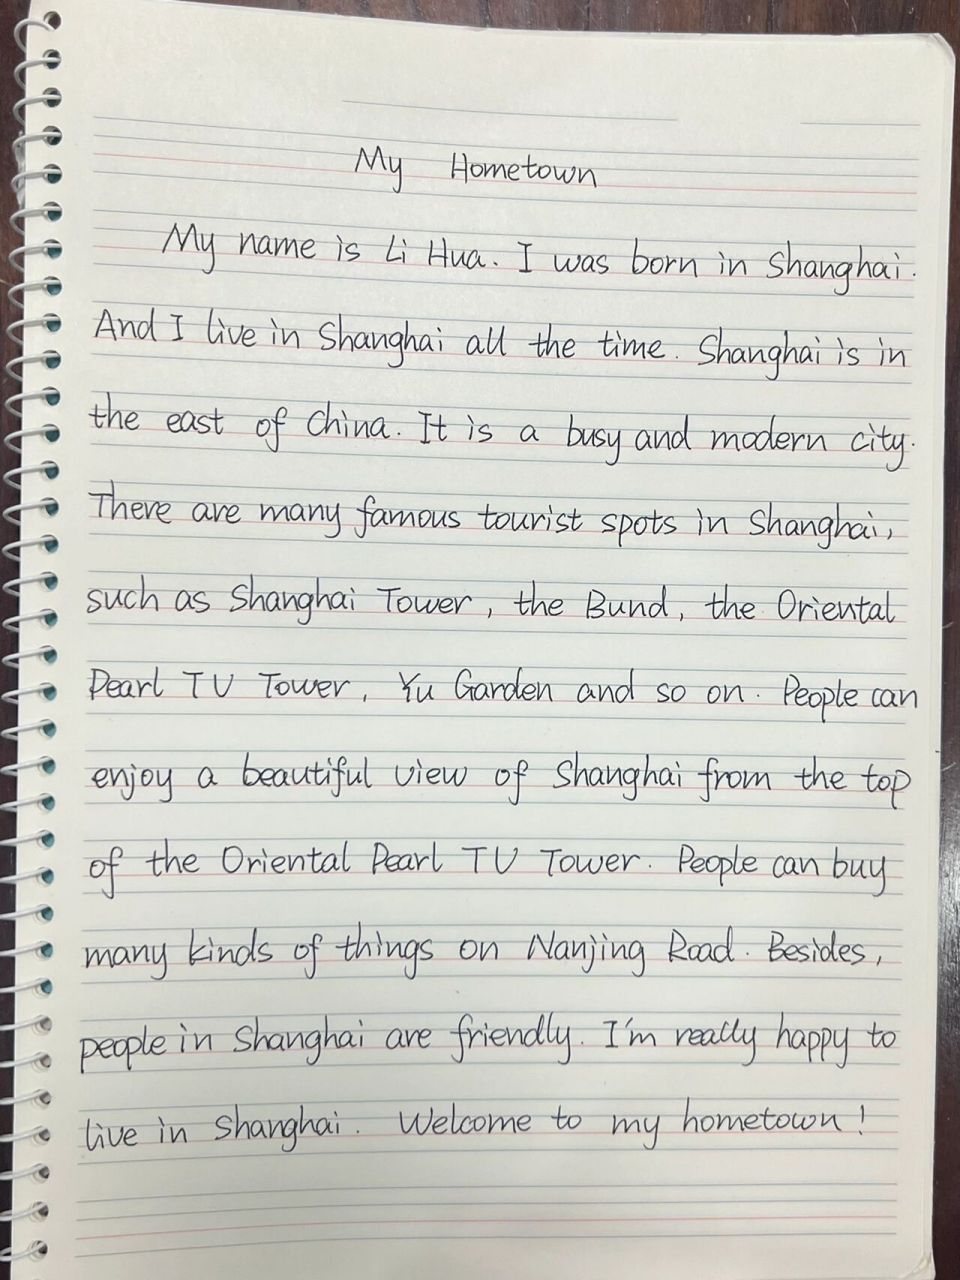 My Hometown
My name is Li Hua. I was born in Shanghai.
And I live in Shanghai all the time. Shanghai is in
the east of China. It is a busy and modern city.
There are many famous tourist spots in Shanghai,
such as Shanghai Tower, the Bund, the Oriental
Pearl TV Tower, Yu Garden and so on. People can
enjoy a beautiful view of Shanghai from the top
of the Oriental Pearl TV Tower. People can buy
many kinds of things on Nanjing Road. Besides,
people in Shanghai are friendly. I'm really happy to
live in Shanghai. Welcome to my hometown!